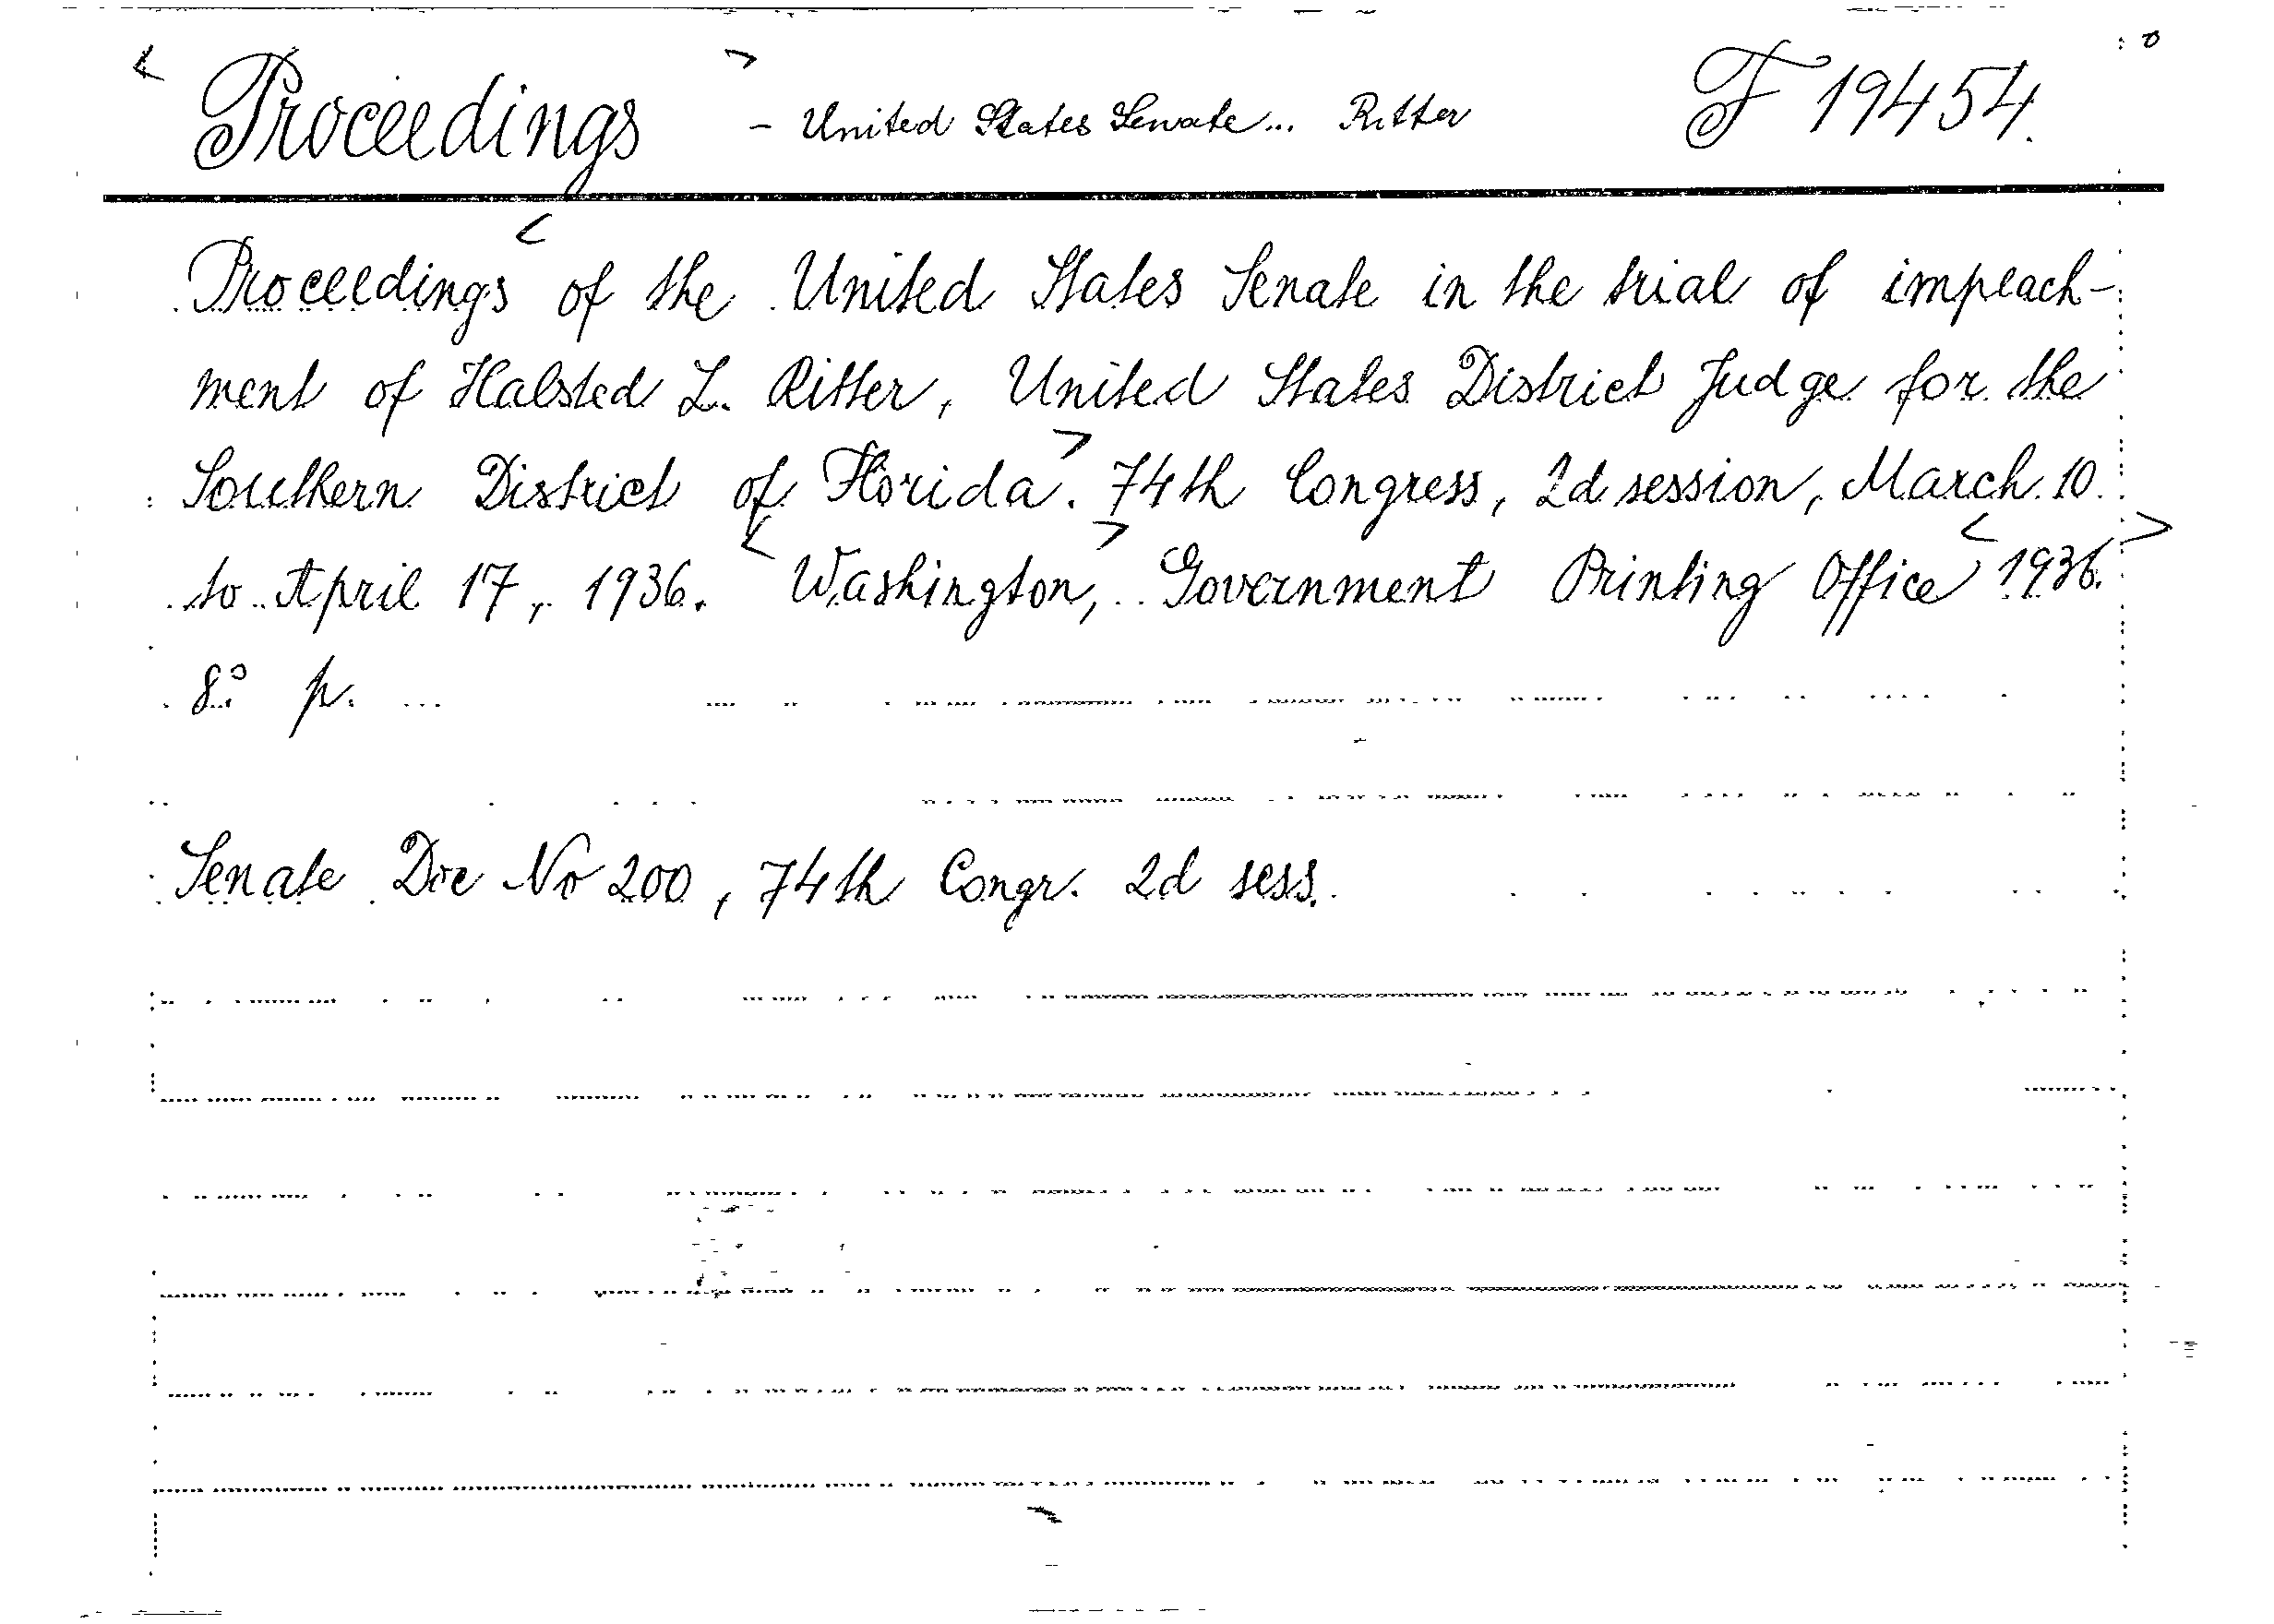 Proceedings - United States Senate... Ritter F 19454.
Proceedings of the United States Senate in the trial of impeach-
ment of Halsted L. Ritter, United States District Judge for the
Southern District of Florida. 74th Congress, 2d session, March 10
to April 17, 1936. Washington, Government Printing Office 1936.
8° p.
Senate Doc No 200, 74th Congr. 2d sess.